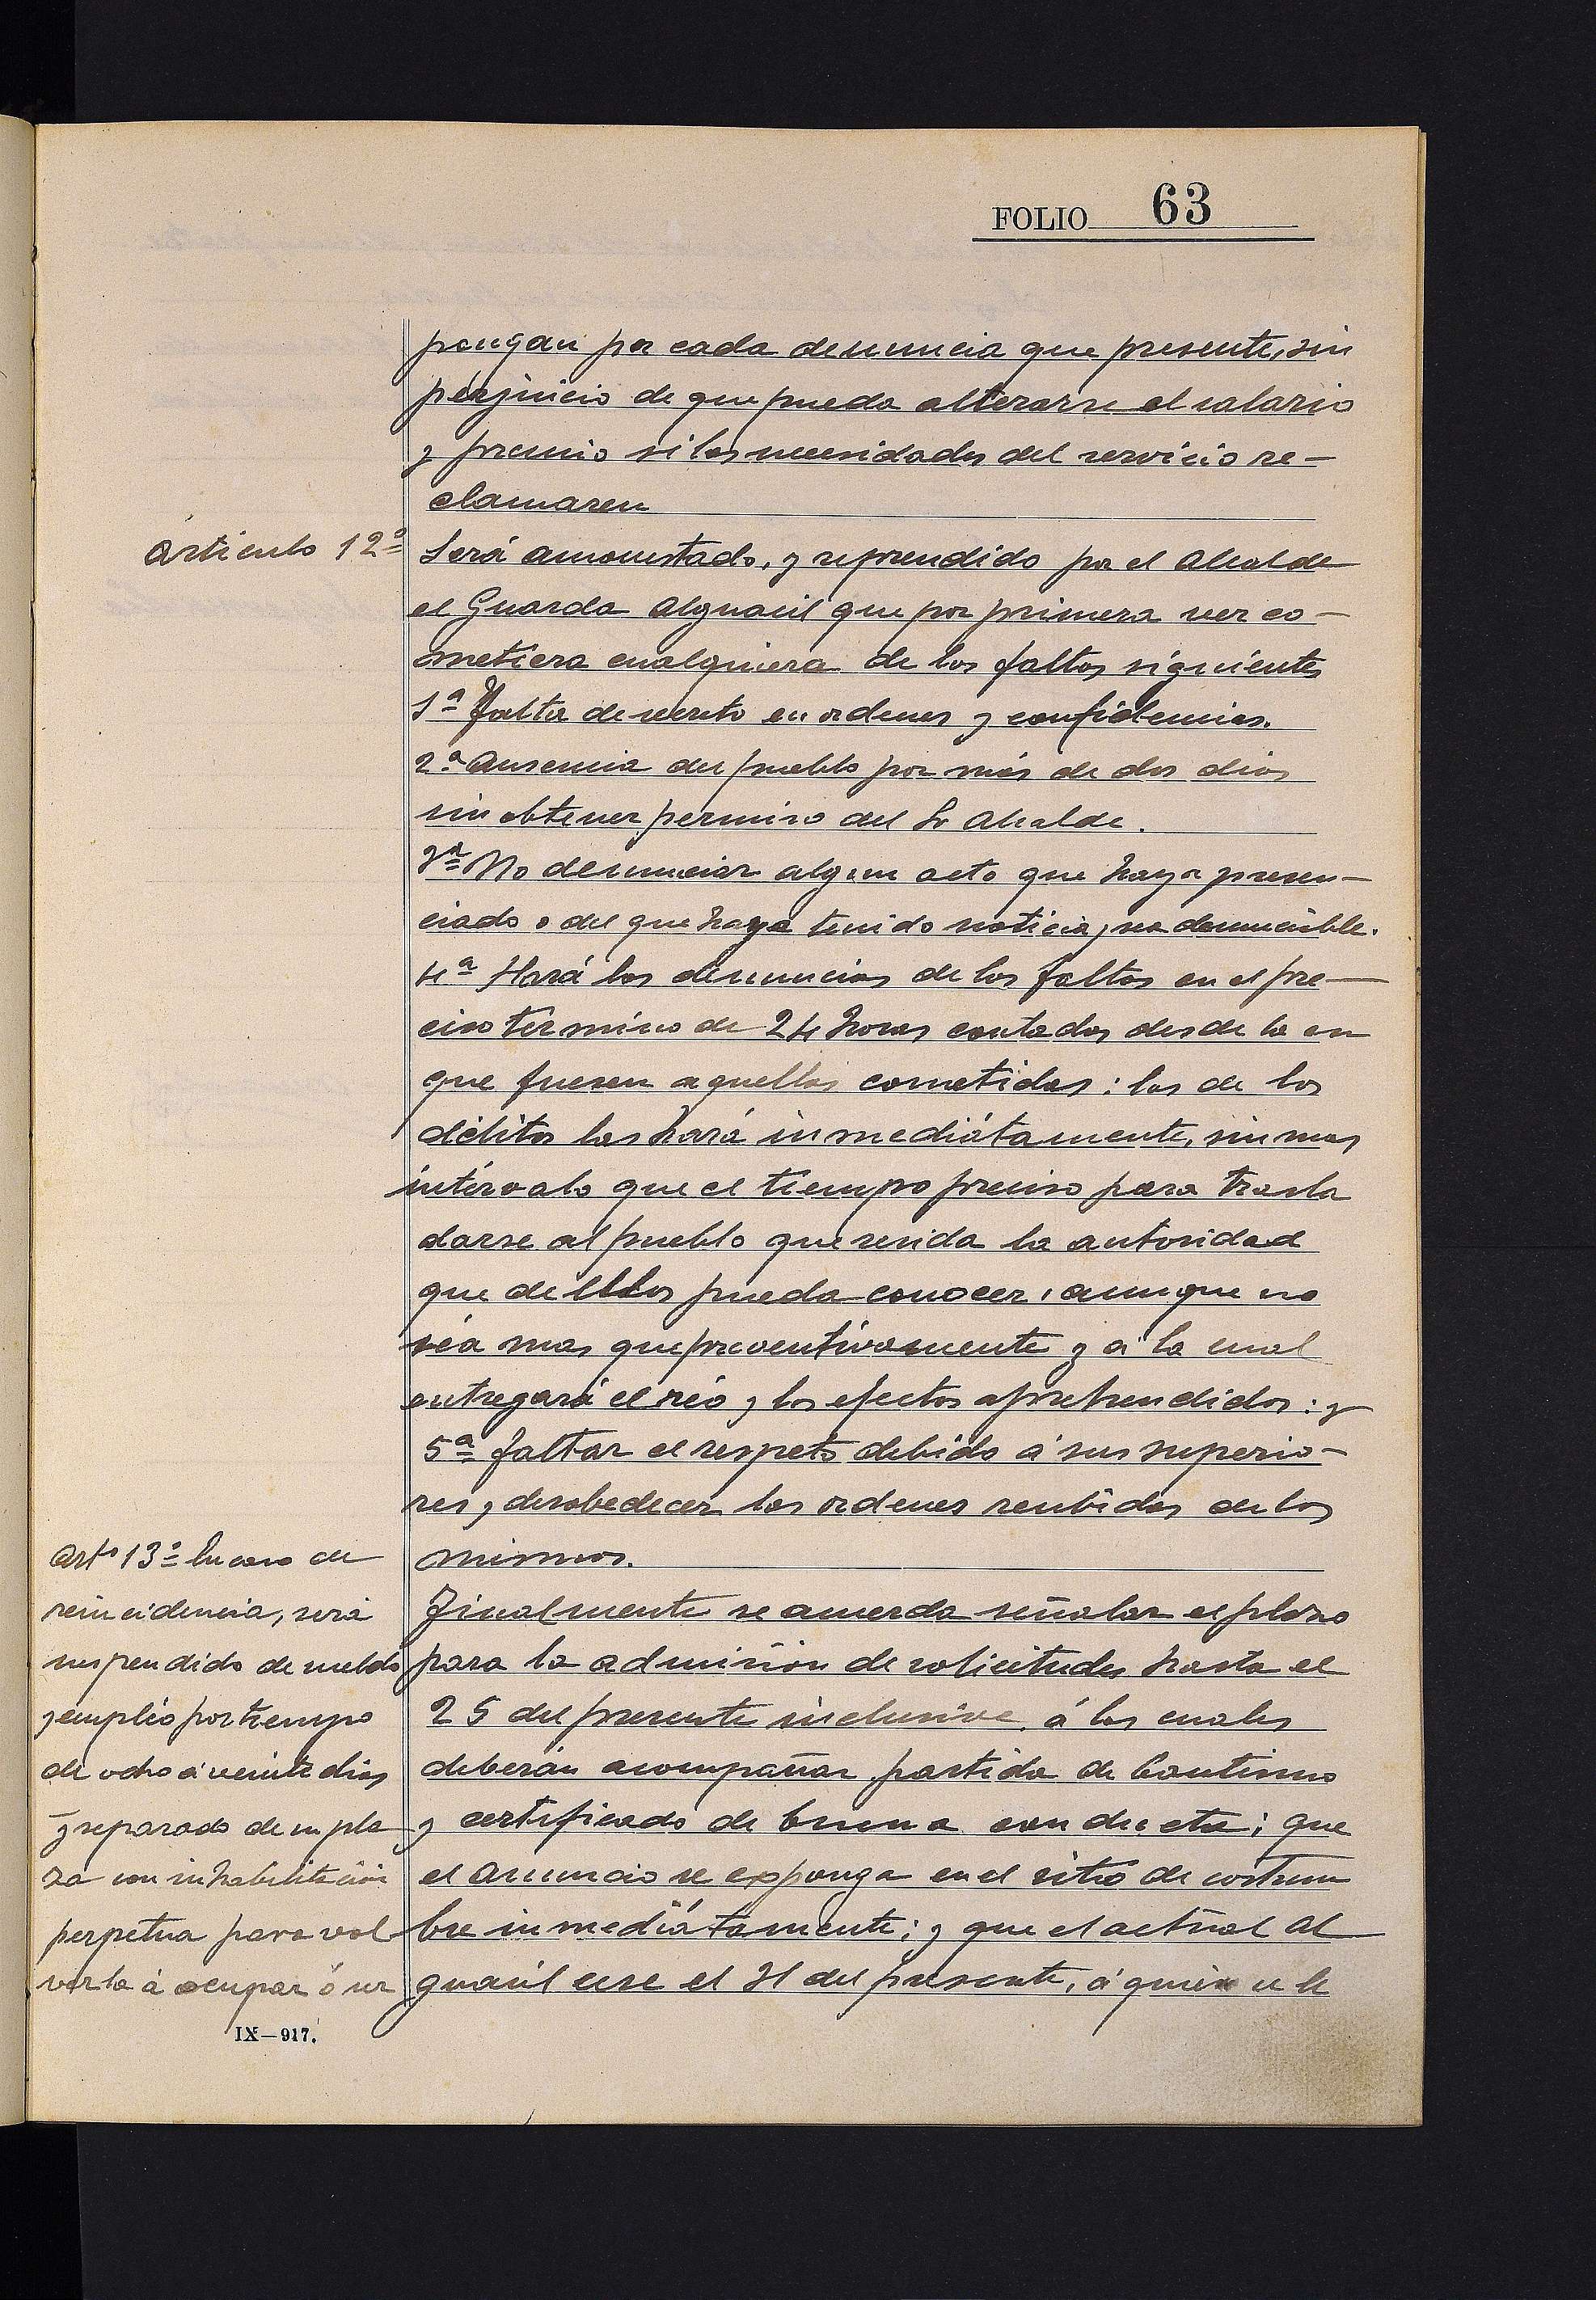 FOLIO 63
pongan por cada denuncia que presente, sin
perjuicio de que pueda alterarse el salario
y premio si las necesidades del servicio re-
clamaren
Artículo 12º
Será amonestado, y reprendido por el Alcalde
el Guarda Alguacil que por primera vez co-
metiera cualquiera de las faltas siguientes
1ª Falta de secreto en ordenes y confidencias.
2ª Ausencia del pueblo por más de dos dias
sin obtener permiso del Sr Alcalde.
3ª No denunciar algun acto que haya presen-
ciado o del que haya tenido noticia, sea denunciable.
4ª Hará las denuncias de las faltas en el pre-
ciso término de 24 horas contadas desde la en
que fuesen aquellas cometidas: las de los
délitos las hará inmediátamente, sin mas
intérvalo que el tiempo preciso para trasla
darse al pueblo que resida la autoridad
que de ellos pueda conocer, aunque no
séa mas que preventivamente y a la cual
entregará el réo y los efectos aprehendidos: y
5ª faltar el respeto debido á sus superio-
res, desobedecer las ordenes recibidas de los
mismos.
Artº 13º En caso de
reincidencia, será
suspendido de sueldo
y empléo por tiempo
de ocho a veinte dias
y separado de su pla
za con inhabilitación
perpetua para vol
verla à ocupar ó ser
Finalmente se acuerda señalar el plazo
para la admisión de solicitudes hasta el
25 del presente inclusive, á las cuales
deberán acompañar partida de bautismo
y certificado de buena conducta; que
el anuncio se exponga en el sitio de costum
bre inmediátamente; y que el actual Al
guacil cese el 31 del presente, á quien se le
IX—917.